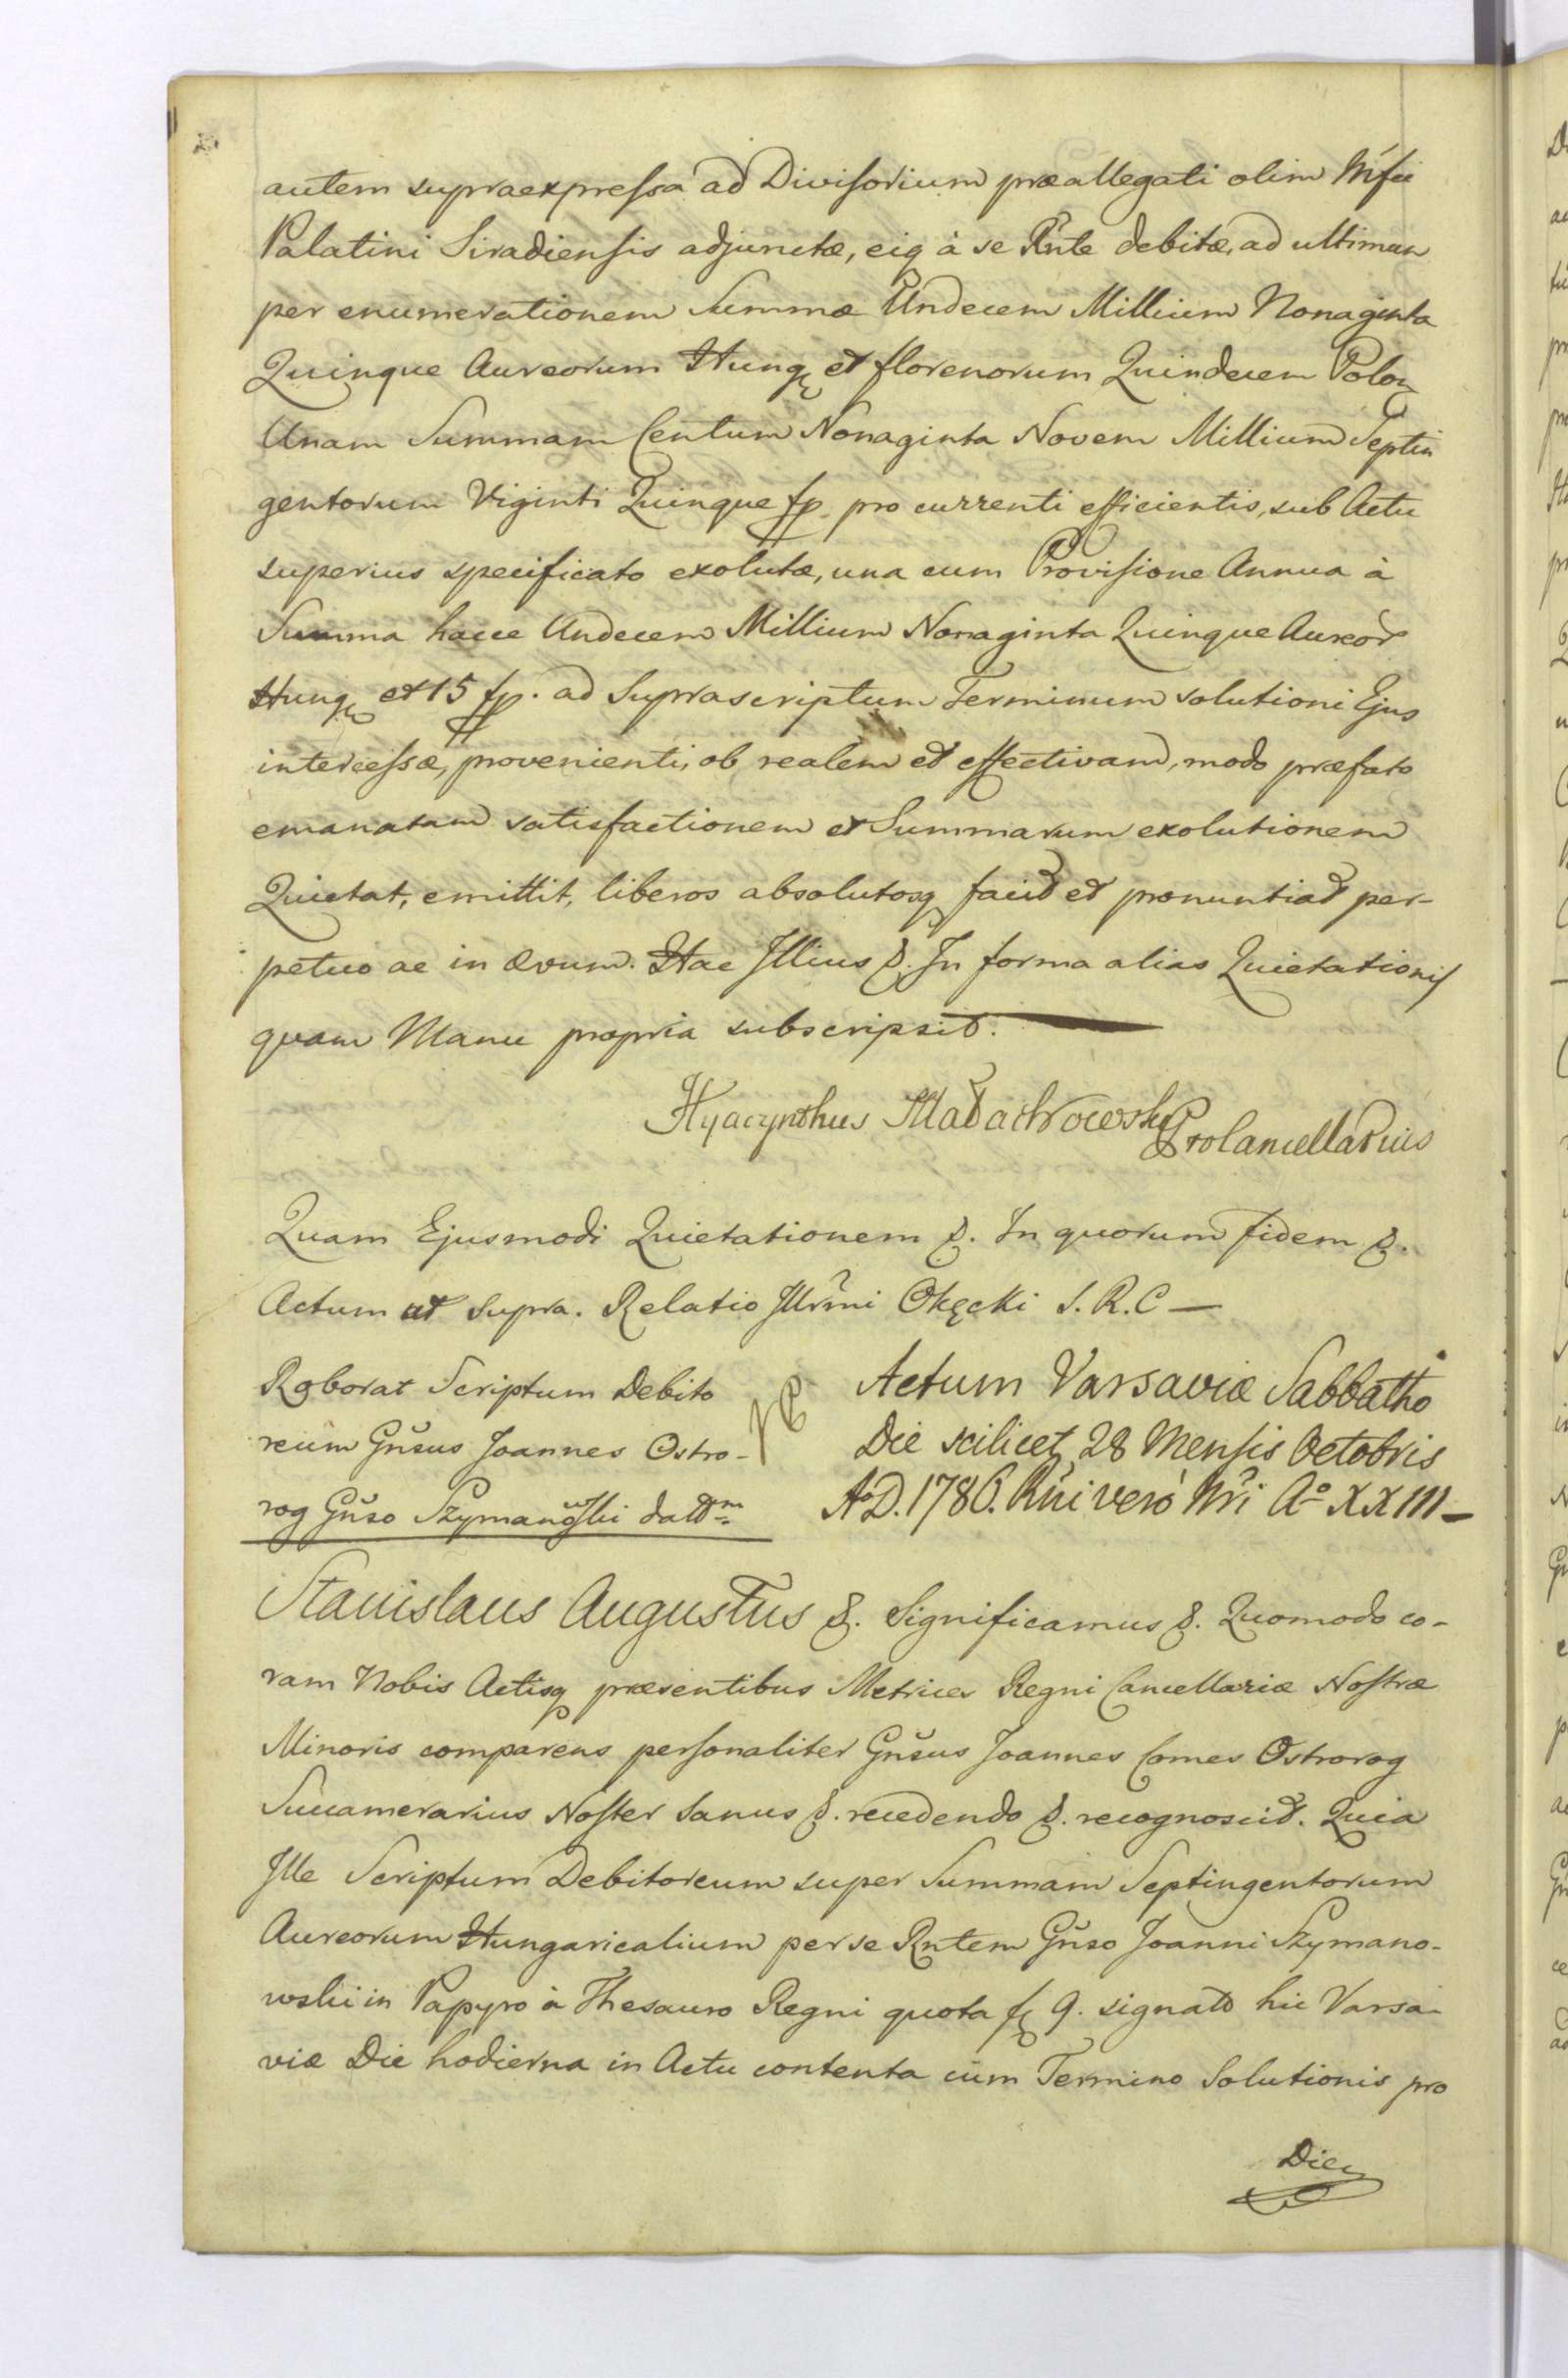 autem supraexpressa ad Divisorium præallegati olim Mfci
Palatini Siradiensis adjunctæ, eiq à se Rnte debitæ, ad ultimum
per enumerationem Summæ Undecem Millium Nonaginta
Quinque Aureorum Hung et florenorum Quindecem Polon
Unam Summam Centum Nonaginta Novem Millium Septin
gentorum Viginti Quinque fp. pro currenti efficientis, sub Actu
superius specificato exolutæ, una cum Provisione Annua à
Summa hacce Undecem Millium Nonaginta Quinque Aureor
Hung et 15 fp. ad Suprascriptum Terminum solutioni Ejus
intercessæ, provenienti, ob realem et effectivam, modo præfato
emanatam satisfactionem et Summarum exolutionem
Quietat, emittit, liberos absolutosq facit et pronuntiat per-
petuo ac in ævum. Hac Illius &. In forma alias Quietationis
quam Manu propria subscripsit.
Hyacynthus Małachowski ProCancellarius
Quam Ejusmodi Quietationem &. In quorum fidem &.
Actum ut Supra. Relatio Illrmi Okęcki S. R. C —
Roborat Scriptum Debito
reum Gnsus Joannes Ostro-
rog Gnso Szymanowski datt m
Actum Varsaviæ Sabbatho
Die scilicet 28 Mensis Octobris
A. D. 1786. Rni vero Nri Ao XXIII —
Stanislaus Augustus &. Significamus &. Quomodo co-
ram Nobis Actisq præsentibus Metrices Regni Cancellariæ Nostræ
Minoris comparens personaliter Gnsus Joannes Comes Ostrorog
Succamerarius Noster Sanus &. recedendo &. recognoscit. Quia
Ille Scriptum Debitoreum super Summam Septingentorum
Aureorum Hungaricalium per se Rntem Gnso Joanni Szymano-
wski in Papyro à Thesauro Regni quota f 9. signato hic Varsa-
viæ Die hodierna in Actu contenta cum Termino Solutionis pro
Die